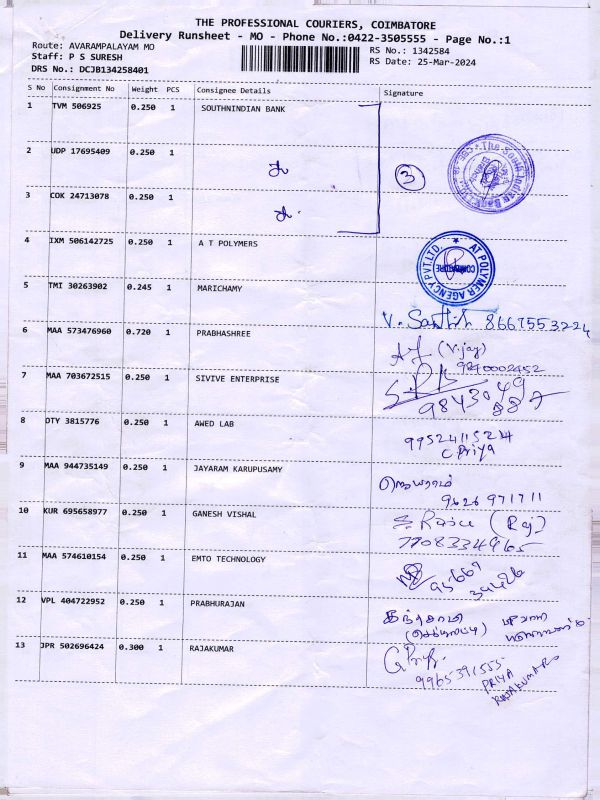 THE PROFESSIONAL COURIERS, COIMBATORE
Delivery Runsheet - MO - Phone No.:0422-3505555 - Page No.:1
Route: AVARAMPALAYAM MO RS No.: 1342584
Staff: P S SURESH RS Date: 25-Mar-2024
DRS No.: DCJB134258401
S No Consignment No Weight PCS Consignee Details Signature
1 TVM 506925 0.250 1 SOUTHNINDIAN BANK
2 UDP 17695409 0.250 1
3
3 COK 24713078 0.250 1
4 IXM 506142725 0.250 1 A T POLYMERS
AT POLYMER AGENCY PVT.LTD. COIMBATORE
5 TMI 30263902 0.245 1 MARICHAMY
V. Santhsh 8667553224
6 MAA 573476960 0.720 1 PRABHASHREE
(Vijay)
9840002452
7 MAA 703672515 0.250 1 SIVIVE ENTERPRISE
9843049
887
8 OTY 3815776 0.250 1 AWED LAB
9952411524
C Priya
9 MAA 944735149 0.250 1 JAYARAM KARUPUSAMY
ஜெயராம்
9626971711
10 KUR 695658977 0.250 1 GANESH VISHAL
(Raj)
7708334965
11 MAA 574610154 0.250 1 EMTO TECHNOLOGY
12 VPL 404722952 0.250 1 PRABHURAJAN
கந்தசாமி
13 JPR 502696424 0.300 1 RAJAKUMAR
9965391555
PRIYA
RAJAKUMAR